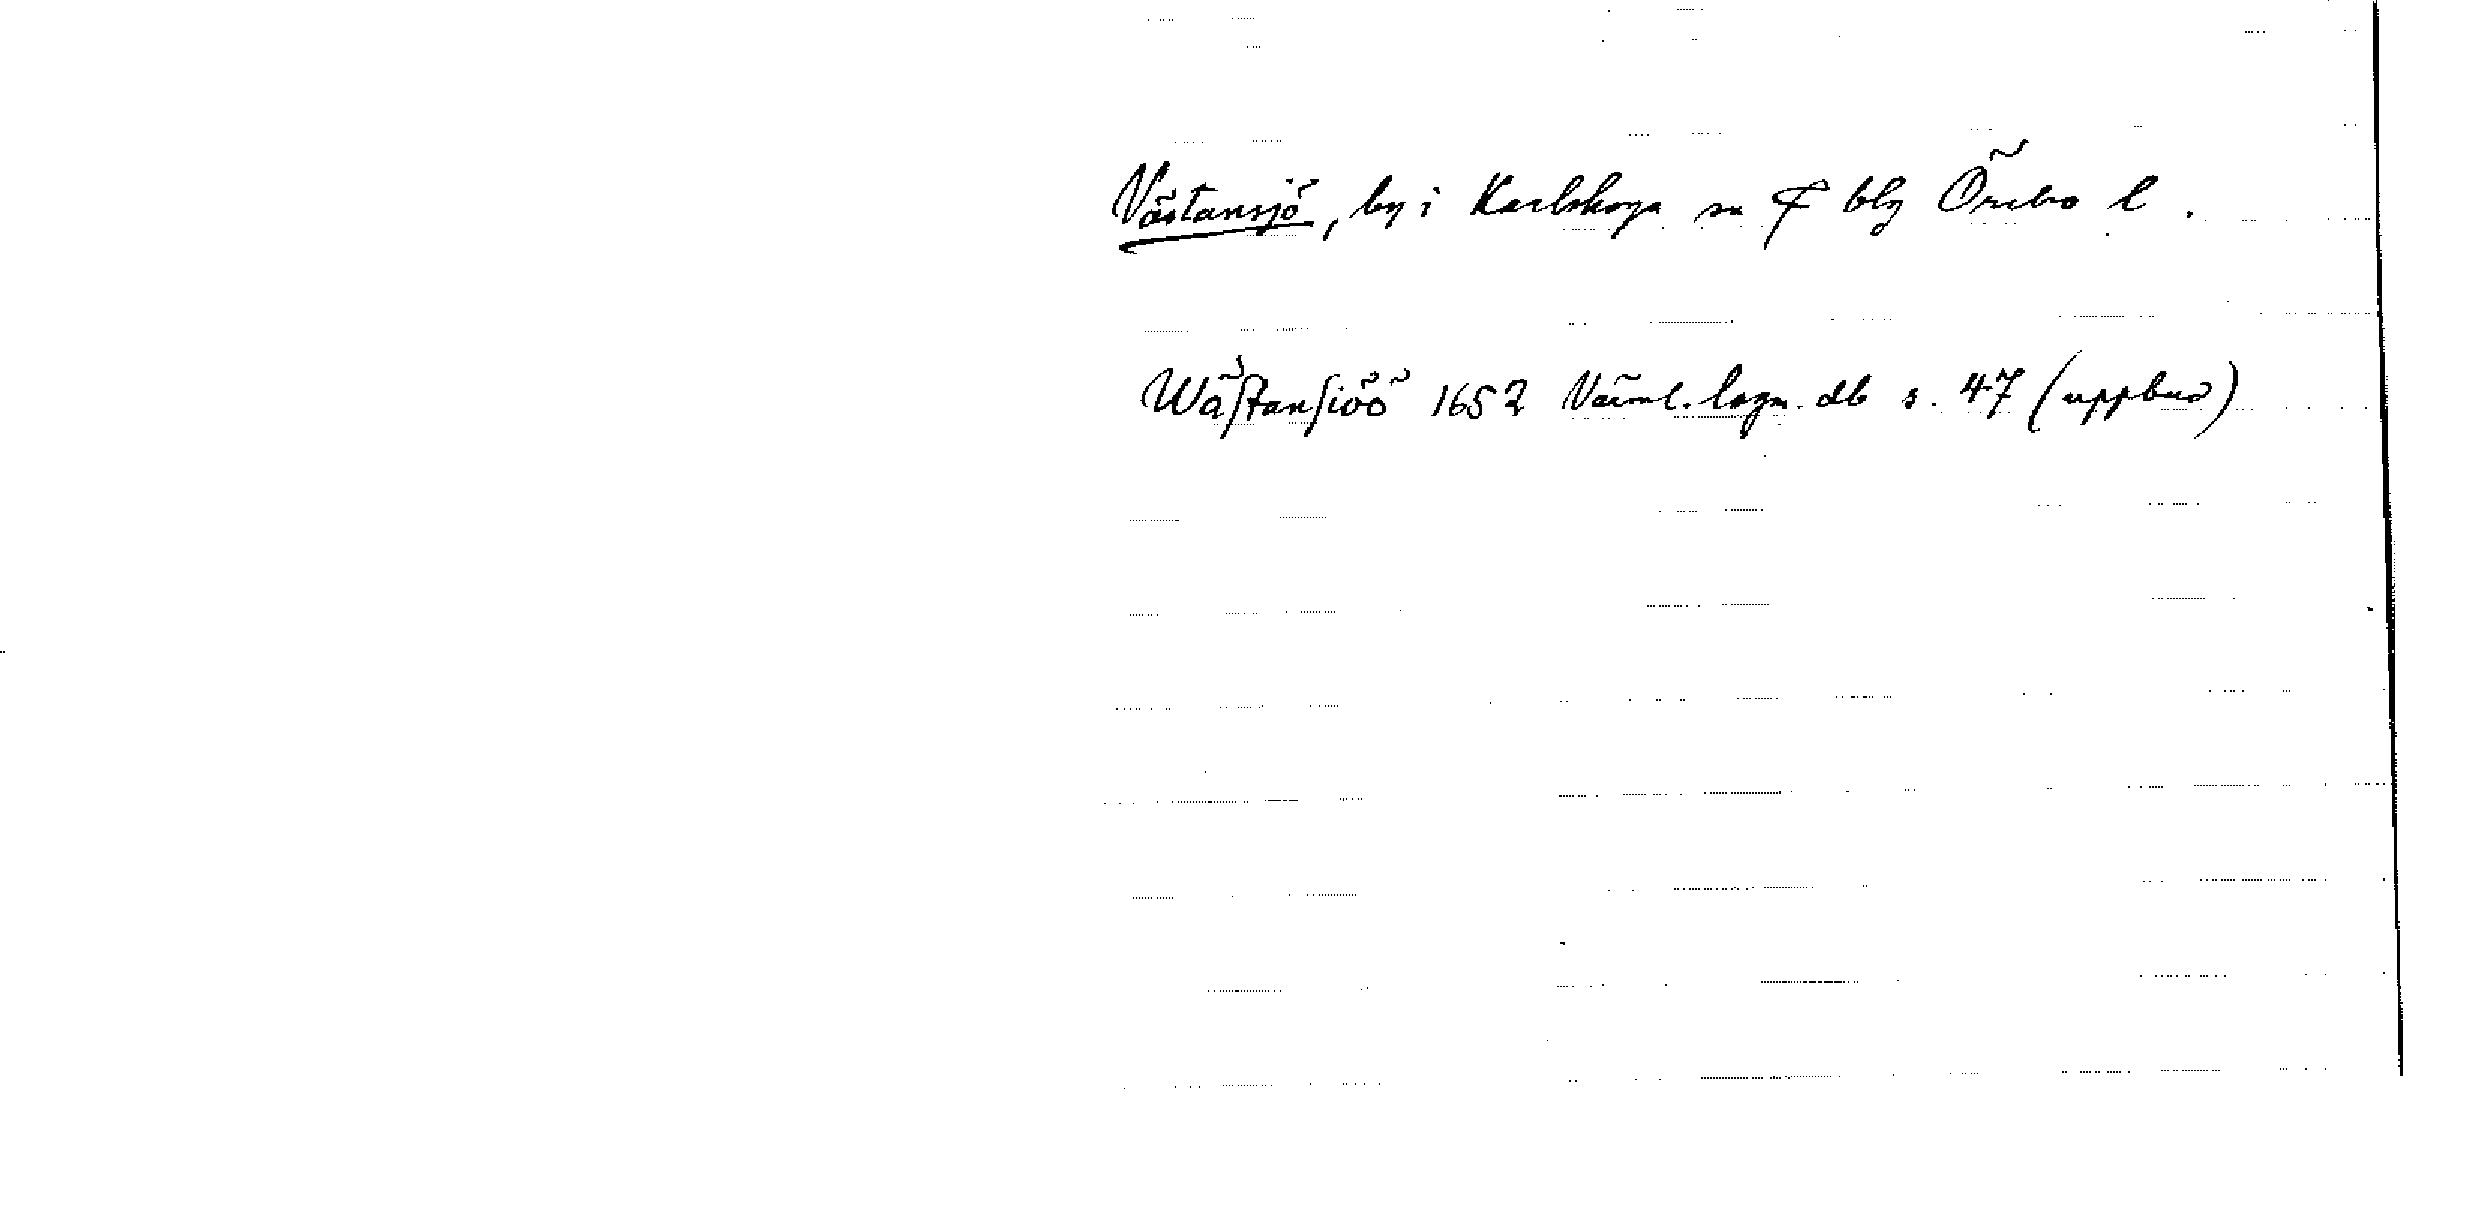 Västansjö, by i Karlskoga sn F blg Örebro l.
Wästansiöö 1652 Värml. lagm. db s. 47 (uppbud)